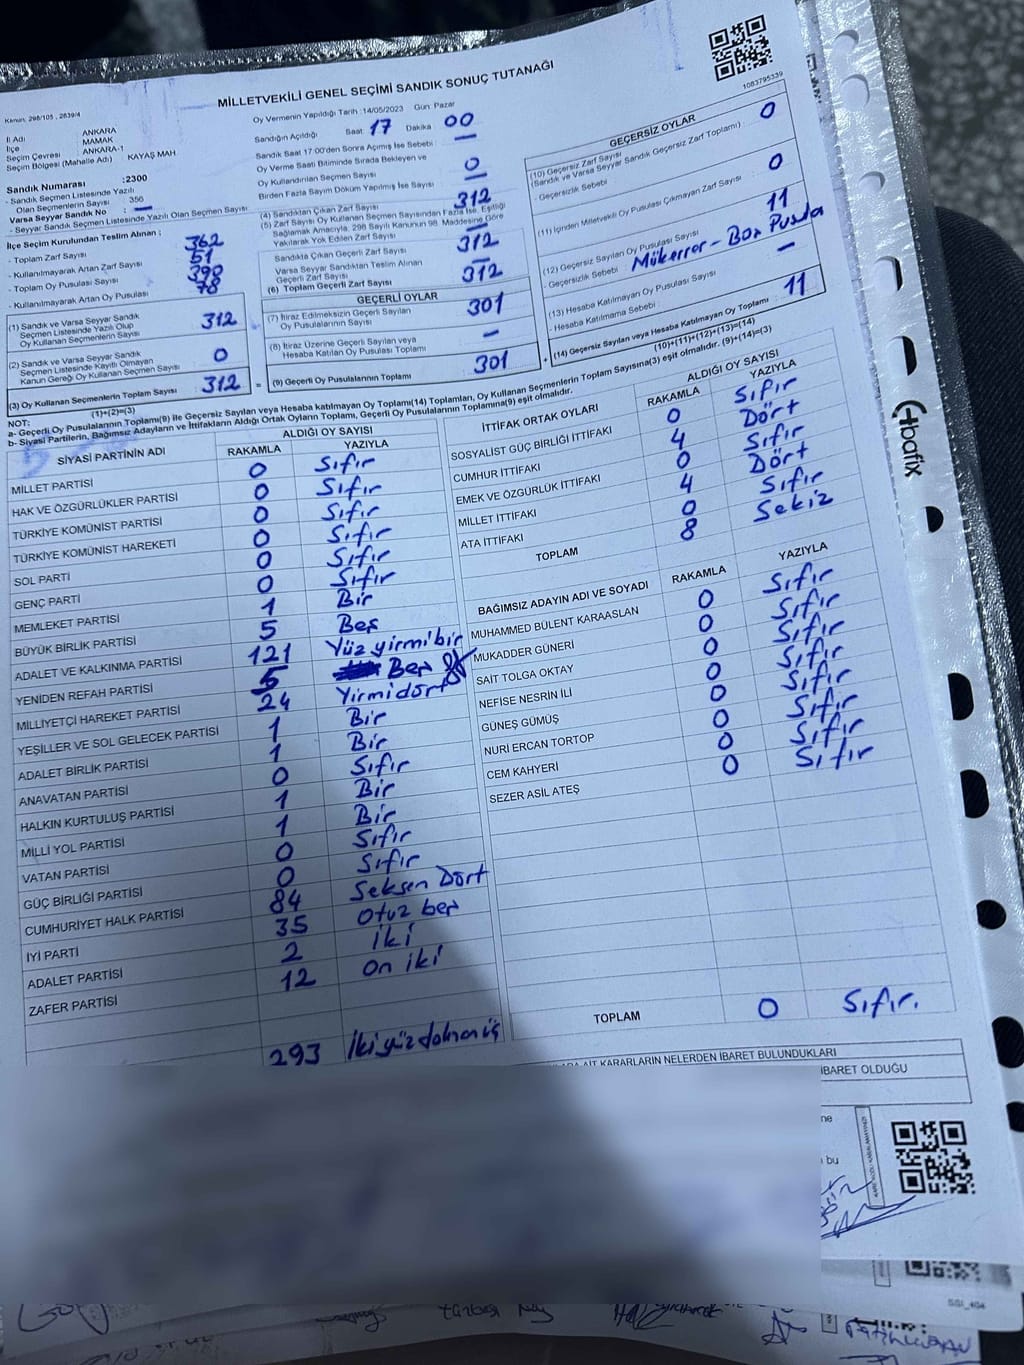 MİLLETVEKİLİ GENEL SEÇİMİ SANDIK SONUÇ TUTANAĞI
1083795339
Kanun, 298/105 , 2839/4
İl Adı ANKARA
İlçe MAMAK
Seçim Çevresi ANKARA-1
Seçim Bölgesi (Mahalle Adı) KAYAŞ MAH
Sandık Numarası :2300
- Sandık Seçmen Listesinde Yazılı
Olan Seçmenlerin Sayısı 350
Varsa Seyyar Sandık No : -
- Seyyar Sandık Seçmen Listesinde Yazılı Olan Seçmen Sayısı
İlçe Seçim Kurulundan Teslim Alınan ;
- Toplam Zarf Sayısı 362
- Kullanılmayarak Artan Zarf Sayısı 51
- Toplam Oy Pusulası Sayısı 390
- Kullanılmayarak Artan Oy Pusulası 78
(1) Sandık ve Varsa Seyyar Sandık
Seçmen Listesinde Yazılı Olup
Oy Kullanan Seçmenlerin Sayısı 312
(2) Sandık ve Varsa Seyyar Sandık
Seçmen Listesinde Kayıtlı Olmayan
Kanun Gereği Oy Kullanan Seçmen Sayısı 0
(3) Oy Kullanan Seçmenlerin Toplam Sayısı 312
(1)+(2)=(3)
Oy Vermenin Yapıldığı Tarih :14/05/2023 Gün: Pazar
Sandığın Açıldığı Saat 17 Dakika 00
Sandık Saat 17:00'den Sonra Açılmış İse Sebebi : -
Oy Verme Saati Bitiminde Sırada Bekleyen ve
Oy Kullandırılan Seçmen Sayısı 0
Birden Fazla Sayım Döküm Yapılmış İse Sayısı -
(4) Sandıktan Çıkan Zarf Sayısı 312
(5) Zarf Sayısı Oy Kullanan Seçmen Sayısından Fazla ise, Eşitliği
Sağlamak Amacıyla, 298 Sayılı Kanunun 98. Maddesine Göre
Yakılarak Yok Edilen Zarf Sayısı -
Sandıkta Çıkan Geçerli Zarf Sayısı 312
Varsa Seyyar Sandıktan Teslim Alınan
Geçerli Zarf Sayısı -
(6) Toplam Geçerli Zarf Sayısı 312
GEÇERLİ OYLAR
(7) İtiraz Edilmeksizin Geçerli Sayılan
Oy Pusulalarının Sayısı 301
(8) İtiraz Üzerine Geçerli Sayılan veya
Hesaba Katılan Oy Pusulası Toplamı -
= (9) Geçerli Oy Pusulalarının Toplamı 301 +
GEÇERSİZ OYLAR
(10) Geçersiz Zarf Sayısı
(Sandık ve Varsa Seyyar Sandık Geçersiz Zarf Toplamı) : 0
- Geçersizlik Sebebi :
(11) İçinden Milletvekili Oy Pusulası Çıkmayan Zarf Sayısı 0
(12) Geçersiz Sayılan Oy Pusulası Sayısı 11
- Geçersizlik Sebebi : Mükerrer - Boş Pusula
(13) Hesaba Katılmayan Oy Pusulası Sayısı -
- Hesaba Katılmama Sebebi :
(14) Geçersiz Sayılan veya Hesaba Katılmayan Oy Toplamı 11
(10)+(11)+(12)+(13)=(14)
NOT:
a- Geçerli Oy Pusulalarının Toplamı(9) ile Geçersiz Sayılan veya Hesaba katılmayan Oy Toplamı(14) Toplamları, Oy Kullanan Seçmenlerin Toplam Sayısına(3) eşit olmalıdır. (9)+(14)=(3)
b- Siyasi Partilerin, Bağımsız Adayların ve İttifakların Aldığı Ortak Oyların Toplamı, Geçerli Oy Pusulalarının Toplamına(9) eşit olmalıdır.
SİYASİ PARTİNİN ADI ALDIĞI OY SAYISI
RAKAMLA YAZIYLA
MİLLET PARTİSİ 0 Sıfır
HAK VE ÖZGÜRLÜKLER PARTİSİ 0 Sıfır
TÜRKİYE KOMÜNİST PARTİSİ 0 Sıfır
TÜRKİYE KOMÜNİST HAREKETİ 0 Sıfır
SOL PARTİ 0 Sıfır
GENÇ PARTİ 0 Sıfır
MEMLEKET PARTİSİ 1 Bir
BÜYÜK BİRLİK PARTİSİ 5 Beş
ADALET VE KALKINMA PARTİSİ 121 Yüz yirmi bir
YENİDEN REFAH PARTİSİ 5 Beş
MİLLİYETÇİ HAREKET PARTİSİ 24 Yirmi dört
YEŞİLLER VE SOL GELECEK PARTİSİ 1 Bir
ADALET BİRLİK PARTİSİ 1 Bir
ANAVATAN PARTİSİ 0 Sıfır
HALKIN KURTULUŞ PARTİSİ 1 Bir
MİLLİ YOL PARTİSİ 1 Bir
VATAN PARTİSİ 0 Sıfır
GÜÇ BİRLİĞİ PARTİSİ 0 Sıfır
CUMHURİYET HALK PARTİSİ 84 Seksen Dört
İYİ PARTİ 35 Otuz beş
ADALET PARTİSİ 2 İki
ZAFER PARTİSİ 12 On iki
293 İkiyüz doksan üç
İTTİFAK ORTAK OYLARI ALDIĞI OY SAYISI
RAKAMLA YAZIYLA
SOSYALİST GÜÇ BİRLİĞİ İTTİFAKI 0 Sıfır
CUMHUR İTTİFAKI 4 Dört
EMEK VE ÖZGÜRLÜK İTTİFAKI 0 Sıfır
MİLLET İTTİFAKI 4 Dört
ATA İTTİFAKI 0 Sıfır
TOPLAM 8 Sekiz
BAĞIMSIZ ADAYIN ADI VE SOYADI RAKAMLA YAZIYLA
MUHAMMED BÜLENT KARAASLAN 0 Sıfır
MUKADDER GÜNERİ 0 Sıfır
SAİT TOLGA OKTAY 0 Sıfır
NEFİSE NESRİN İLİ 0 Sıfır
GÜNEŞ GÜMÜŞ 0 Sıfır
NURİ ERCAN TORTOP 0 Sıfır
CEM KAHYERİ 0 Sıfır
SEZER ASİL ATEŞ 0 Sıfır
TOPLAM 0 Sıfır.
AİT KARARLARIN NELERDEN İBARET BULUNDUKLARI
İBARET OLDUĞU
bu
Abafix